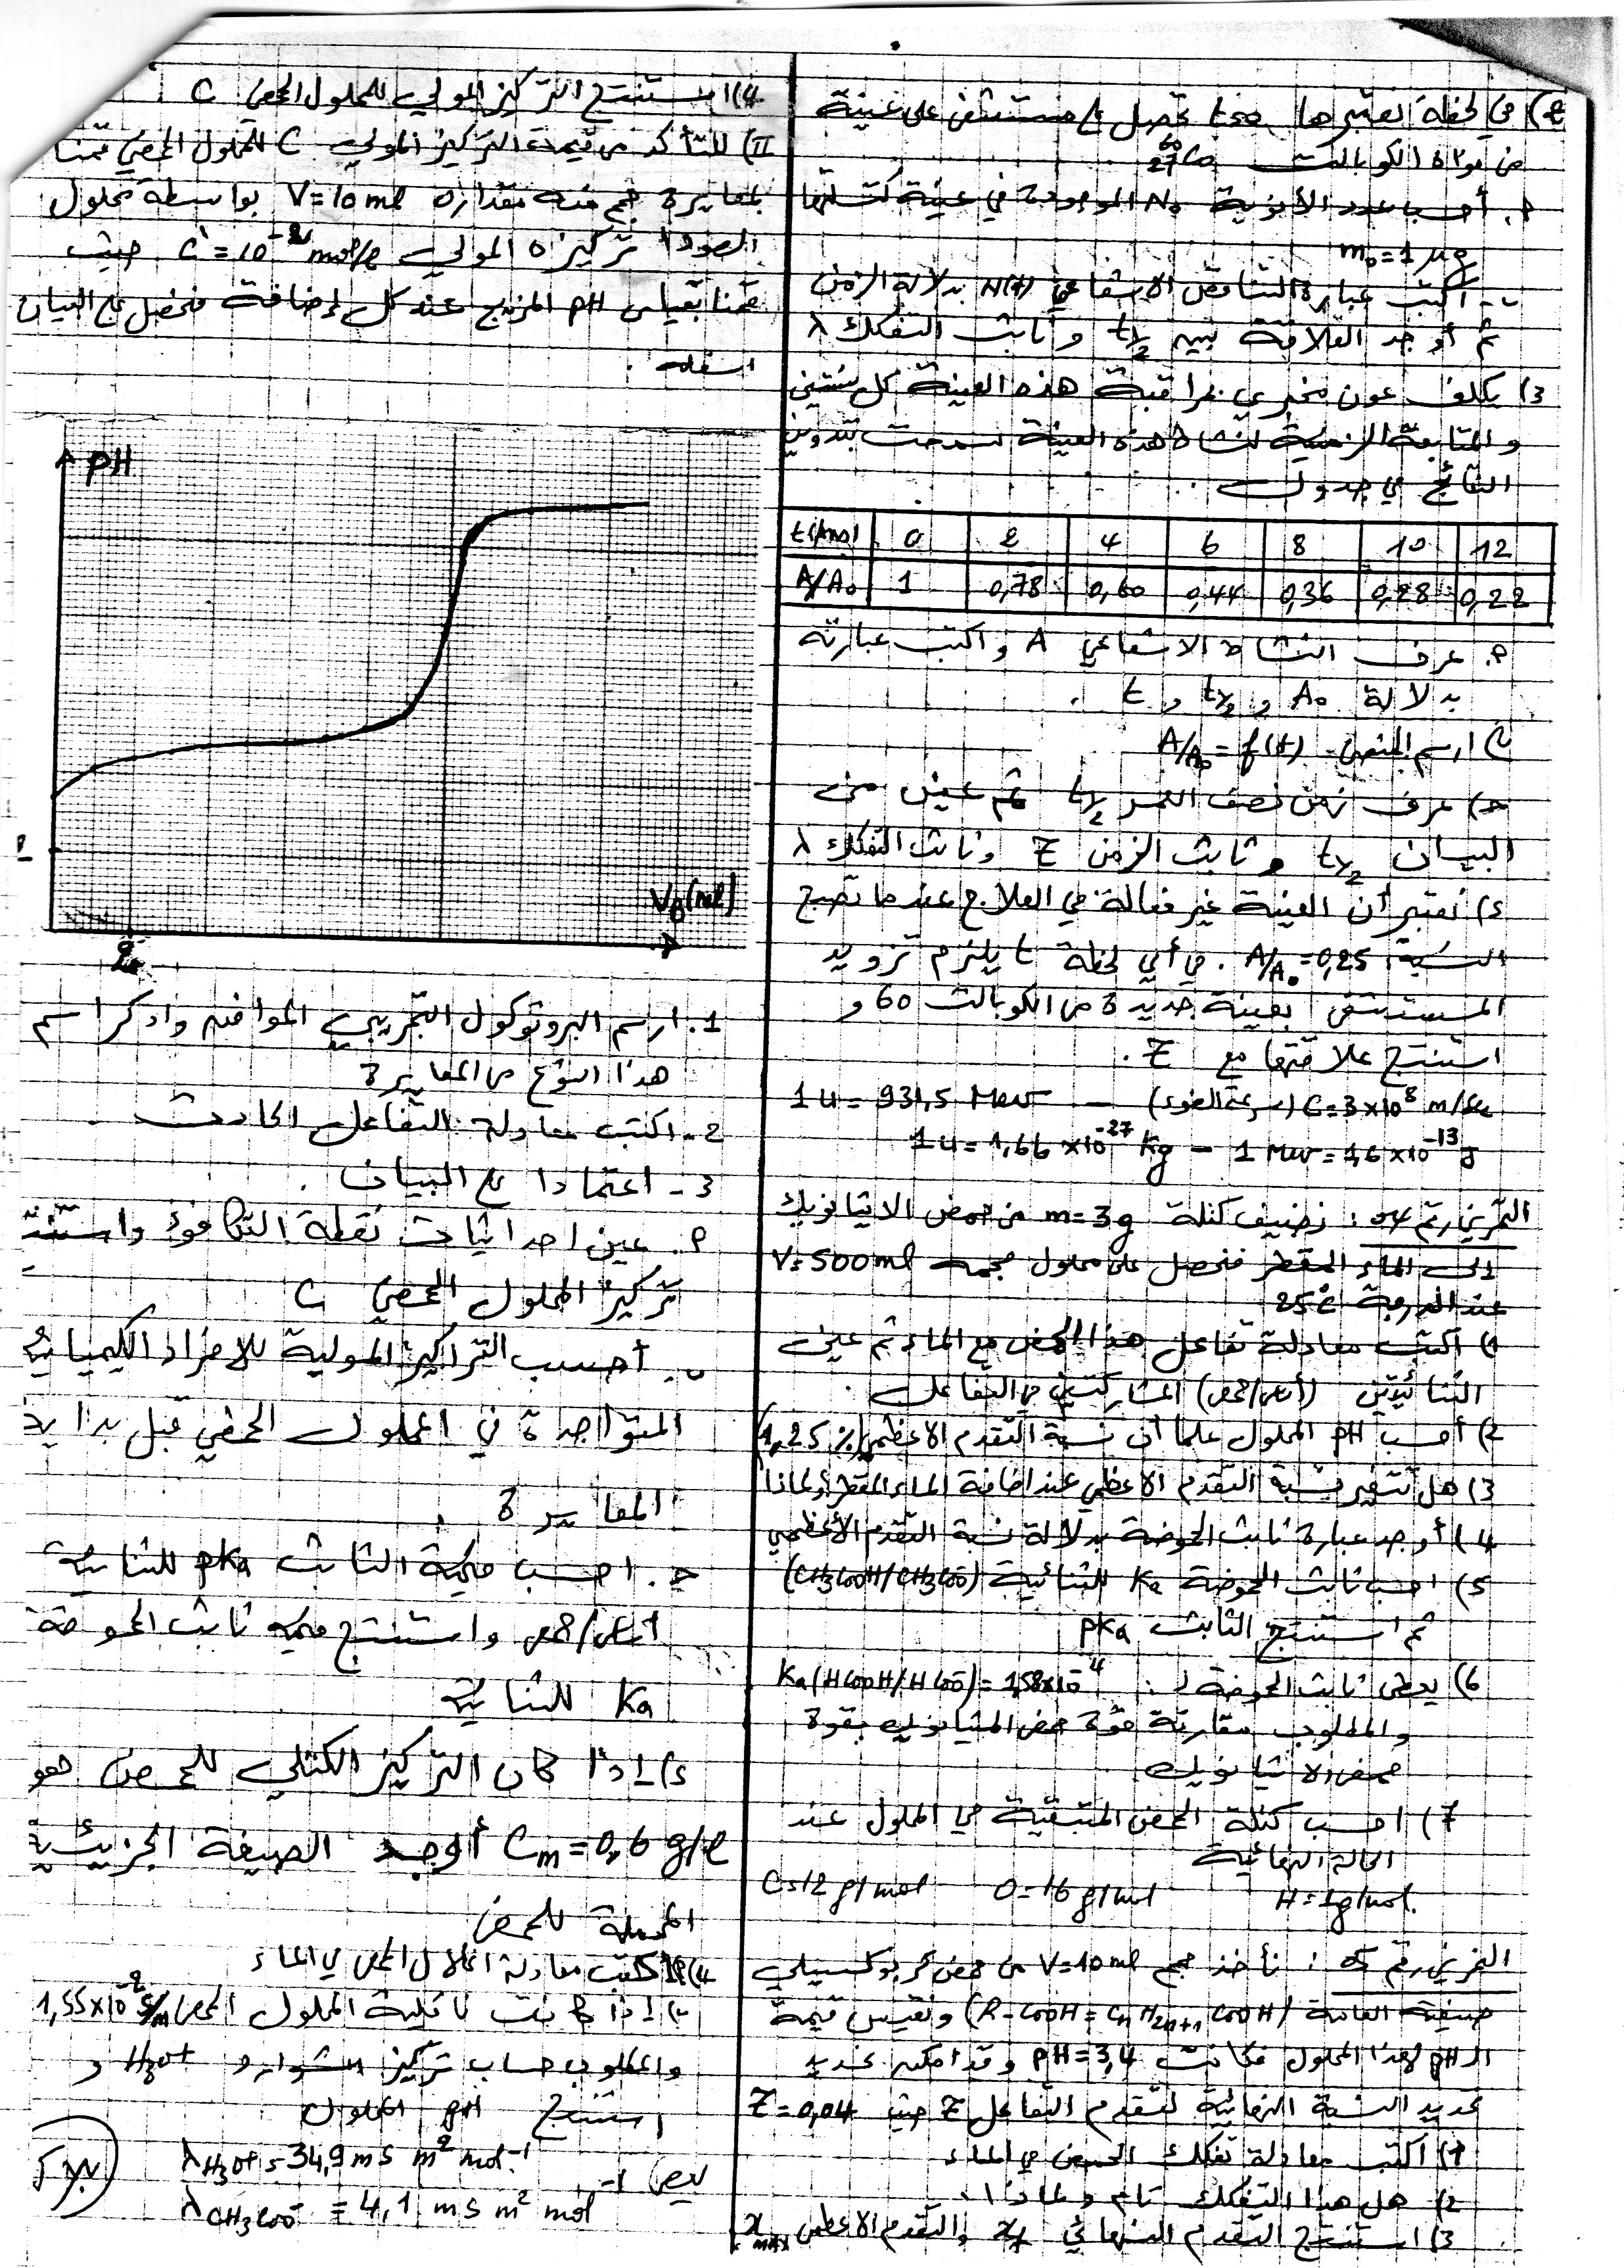 2) في لحظة نعتبرها t=0 تحصل مستشفى على عينة
من نواة الكوبالت 60 27 Co
P. أحسب عدد الأنوية N₀ الموجودة في عينة كتلتها
m₀ = 1 µg
ب- اكتب عبارة التناقص الاشعاعي N(t) بدلالة الزمن
ثم أوجد العلاقة بين t½ وثابت التفكك λ
3) يكلف عون مخبري بمراقبة هذه العينة كل سنتين
والمتابعة الزمنية لنشاط هذه العينة سمحت بتدوين
النتائج في جدول
t(ans) 0 2 4 6 8 10 12
A/A₀ 1 0,78 0,60 0,44 0,36 0,28 0,22
P. عرف النشاط الاشعاعي A واكتب عبارته
بدلالة A₀ و t½ و t .
ب) ارسم المنحنى A/A₀ = f(t)
ح) عرف زمن نصف العمر t½ ثم عين من
البيان t½ وثابت الزمن τ وثابت التفكك λ
د) نعتبر أن العينة غير فعالة في العلاج عندما تصبح
النسبة A/A₀ = 0,25 . في أي لحظة t يلزم تزويد
المستشفى بعينة جديدة من الكوبالت 60 و
استنتج علاقتها مع τ .
1u = 931,5 Mev – (سرعة الضوء) C = 3×10⁸ m/sec
1u = 1,66×10⁻²⁷ Kg – 1 Mev = 1,6×10⁻¹³ J
التمرين رقم 04 : نضيف كتلة m = 3g من حمض الايثانويك
إلى الماء المقطر فنحصل على محلول حجمه V=500ml
عند الدرجة 25°C
1) اكتب معادلة تفاعل هذا الحمض مع الماء ثم عين
الثنائيتين (أساس/حمض) المشاركتين في التفاعل .
2) أحسب PH المحلول علما أن نسبة التقدم الاعظمي (1,25%)
3) هل تتغير نسبة التقدم الاعظمي عند اضافة الماء المقطر ولماذا
4) أوجد عبارة ثابت الحموضة بدلالة نسبة التقدم الأعظمي
5) احسب ثابت الحموضة Ka للثنائية (CH₃COOH/CH₃COO⁻)
ثم استنتج الثابت pKa
6) يعطى ثابت الحموضة لـ : Ka(HCOOH/HCOO⁻) = 1,58×10⁻⁴
والمطلوب مقارنة قوة حمض الميثانويك بقوة
حمض الايثانويك
7) احسب كتلة الحمض المتبقية في المحلول عند
الحالة النهائية
C=12 g/mol O=16 g/mol H=1g/mol.
التمرين رقم 05 : نأخذ حجم V=10ml من حمض كربوكسيلي
صيغته العامة (R-COOH = CnH2n+1 COOH) ونقيس قيمة
الـ pH لهذا المحلول فكانت PH = 3,4 وقد أمكن تحديد
تحديد النسبة النهائية لتقدم التفاعل τ حيث τ = 0,04
1) اكتب معادلة تفكك الحمض في الماء
2) هل هذا التفكك تام ولماذا
3) استنتج التقدم النهائي xf والتقدم الاعظمي xmax
4) استنتج التركيز المولي للمحلول الحمضي C
II) للتأكد من قيمة التركيز المولي C للمحلول الحمضي قمنا
بمعايرة حجم منه مقداره V=10ml بواسطة محلول
الصودا تركيزه المولي C' = 10⁻² mol/l حيث
قمنا بقياس PH المزيج عند كل إضافة فنحصل على البيان
اسفله .
PH
2
VB(ml)
1. ارسم البروتوكول التجريبي الموافق واذكر اسم
هذا النوع من المعايرة
2- اكتب معادلة التفاعل الحادث
3- اعتمادا على البيان .
P. عين احداثيات نقطة التكافؤ واستنتج
تركيز المحلول الحمضي C
ب. أحسب التراكيز المولية للافراد الكيميائية
المتواجدة في المحلول الحمضي قبل بداية
المعايرة .
ح. احسب قيمة الثابت pKa للثنائية
أساس/حمض واستنتج قيمة ثابت الحموضة
Ka للثنائية
د) إذا كان التركيز الكتلي للحمض هو
Cm = 0,6 g/l أوجد الصيغة الجزيئية
المجملة للحمض
4) P) اكتب معادلة انحلال الحمض في الماء
ب) إذا كانت ناقلية المحلول الحمضي 1,55×10⁻² S/m
والمطلوب حساب تركيز شوارد H₃O⁺ و
استنتج pH المحلول
يعطى λH₃O⁺ = 34,9 ms m² mol⁻¹
λCH₃COO⁻ = 4,1 ms m² mol⁻¹